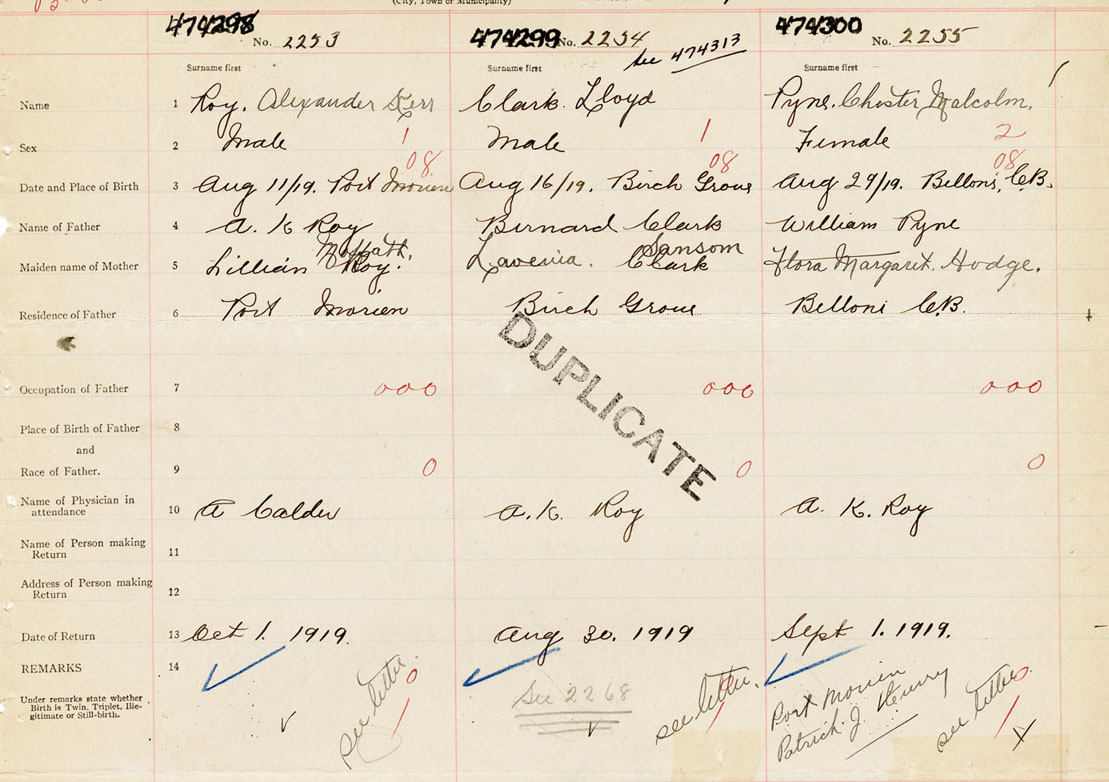 (City, Town or Municipality)
474298 No. 2253
474299 No. 2254 See 474313
474300 No. 2255
Surname first Surname first Surname first
Name 1 Roy. Alexander Kerr Clark. Lloyd Pyne. Chester Malcolm.
Sex 2 Male 1 Male 1 Female 2
08 08 08
Date and Place of Birth 3 Aug 11/19. Port Morien Aug 16/19. Birch Grove Aug 29/19. Belloni, C.B.
Name of Father 4 A. K Roy Bernard Clark William Pyne
Moffath. Sansom
Maiden name of Mother 5 Lillian Roy. Lavenia. Clark Flora Margaret. Hodge.
Residence of Father 6 Port Morien Birch Grove Belloni C.B.
DUPLICATE
Occupation of Father 7 000 000 000
Place of Birth of Father 8
and
Race of Father. 9 0 0 0
Name of Physician in
attendance 10 A Calder A. K. Roy A. K. Roy
Name of Person making
Return 11
Address of Person making
Return 12
Date of Return 13 Oct 1. 1919. Aug 30. 1919 Sept 1. 1919.
REMARKS 14
Under remarks state whether
Birth is Twin, Triplet, Ille-
gitimate or Still-birth.
see letter. 0
See 2268
see letter.
Port Morien
Patrick J. Henry
see letter 0